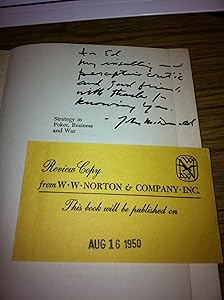 for Ed
my
perceptive critic
and good friend,
with thanks for
knowing you.
John McDonald
Strategy in
Poker, Business
and War
Review Copy
from W·W·NORTON & COMPANY·INC.
This book will be published on
AUG 16 1950